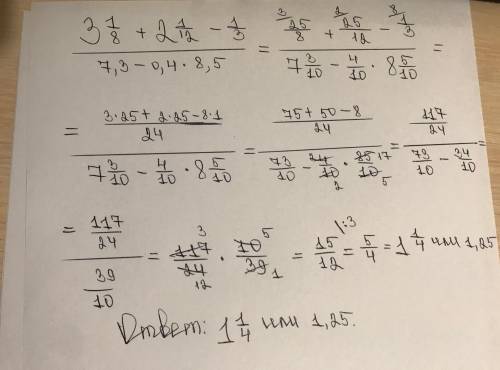 (3 1/8 + 2 1/12 - 1/3) / (7,3 - 0,4 · 8,5) = (³ 25/8 + ² 25/12 - ⁸ 1/3) / (7 3/10 - 4/10 · 8 5/10) =
= ((3·25 + 2·25 - 8·1) / 24) / (7 3/10 - 4/10 · 8 5/10) = ((75 + 50 - 8) / 24) / (73/10 - 4/10 2 · 85/10 17 5) = (117/24) / (73/10 - 34/10) =
= (117/24) / (39/10) = 117/24 3 12 · 10/39 5 1 = 15/12 \:3 = 5/4 = 1 1/4 или 1,25
Ответ: 1 1/4 или 1,25.